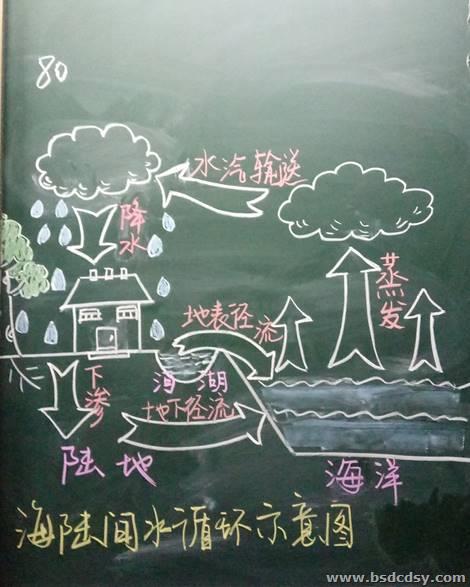 80
水汽输送
降水
蒸发
地表径流
下渗
湖
地下径流
陆地
海洋
海陆间水循环示意图
www.bsdcdsy.com